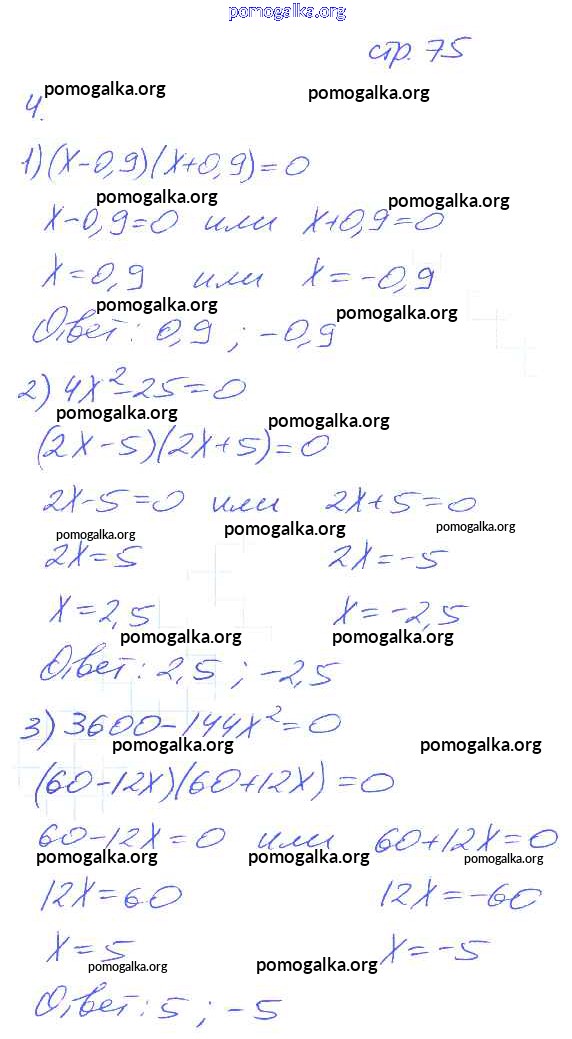 pomogalka.org
стр. 75
pomogalka.org pomogalka.org
4.
1) (x-0,9)(x+0,9)=0
pomogalka.org pomogalka.org
x-0,9=0 или x+0,9=0
x=0,9 или x=-0,9
pomogalka.org pomogalka.org
Ответ: 0,9 ; -0,9
2) 4x²-25=0
pomogalka.org pomogalka.org
(2x-5)(2x+5)=0
2x-5=0 или 2x+5=0
pomogalka.org pomogalka.org pomogalka.org
2x=5 2x=-5
x=2,5 x=-2,5
pomogalka.org pomogalka.org
Ответ: 2,5 ; -2,5
3) 3600-144x²=0
pomogalka.org pomogalka.org
(60-12x)(60+12x)=0
60-12x=0 или 60+12x=0
pomogalka.org pomogalka.org pomogalka.org
12x=60 12x=-60
x=5 x=-5
pomogalka.org pomogalka.org
Ответ: 5 ; -5